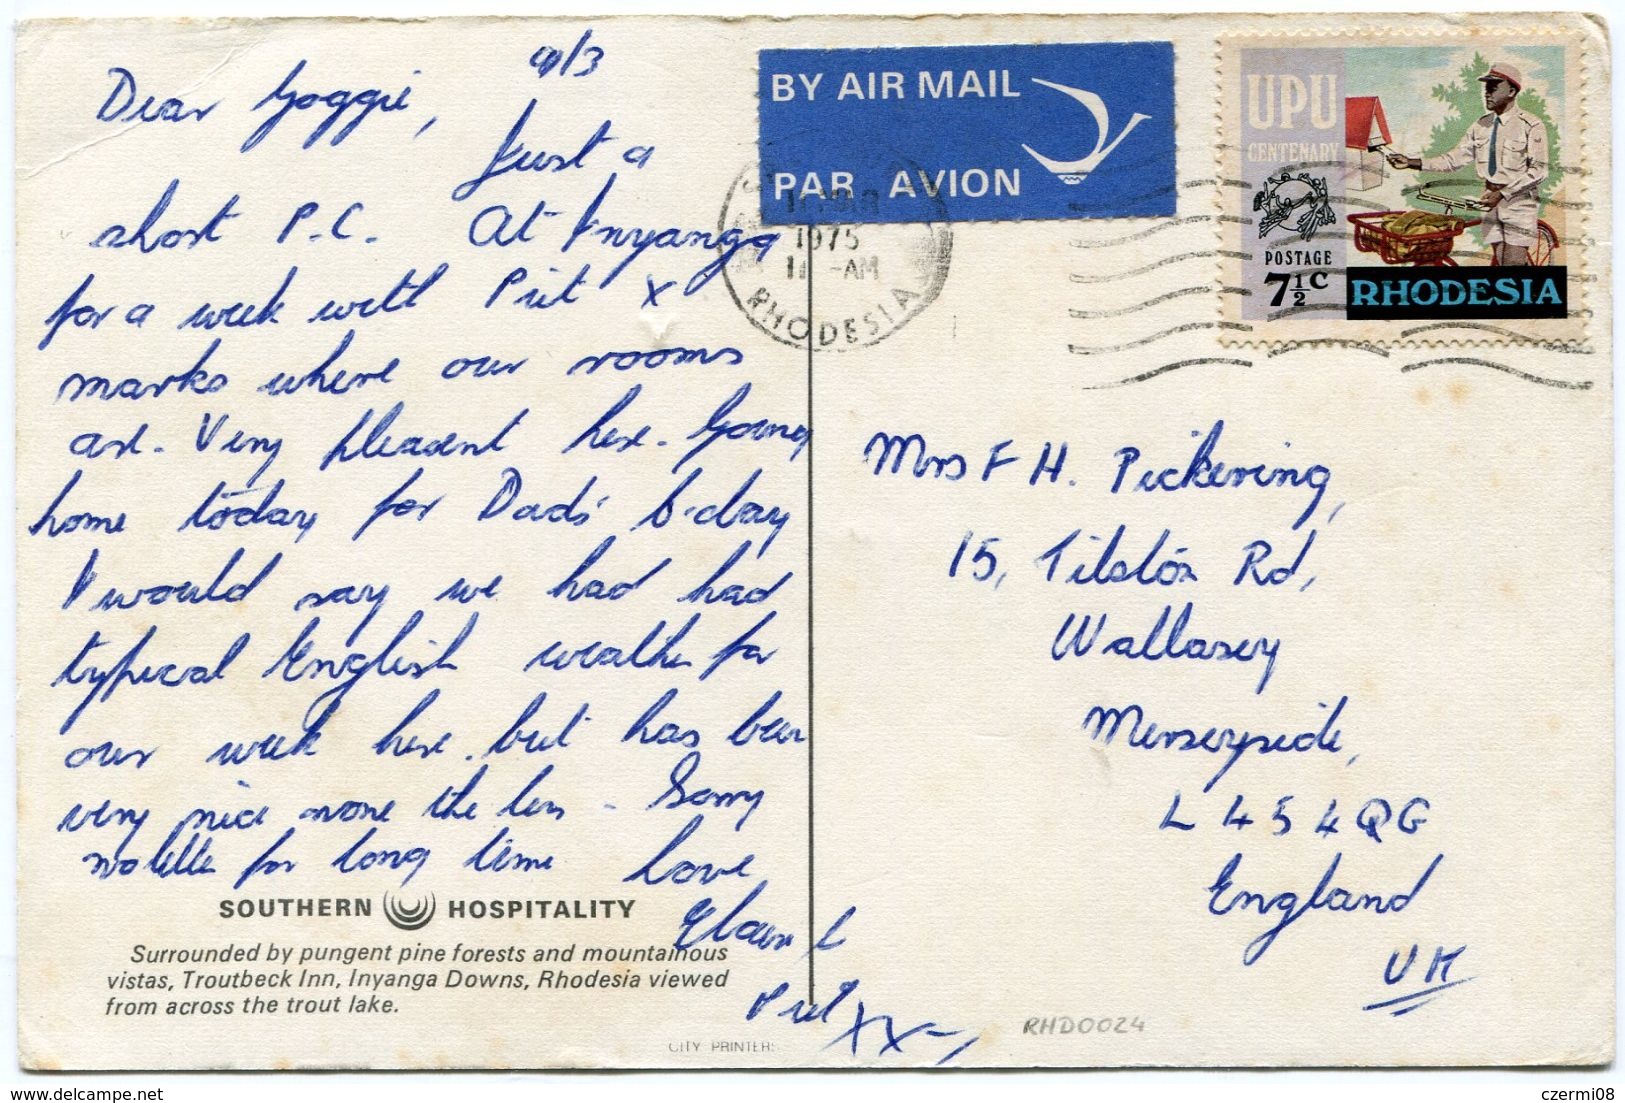 9/3
Dear Goggie,
Just a
short P.C. At Inyanga
for a week with Piet X
marks where our rooms
are. Very pleasant here. Going
home today for Dad's b-day
I would say we had had
typical English weather for
our week here, but has been
very nice none the less - Sorry
no letter for long time Love
Piet XX
SOUTHERN HOSPITALITY
Surrounded by pungent pine forests and mountainous
vistas, Troutbeck Inn, Inyanga Downs, Rhodesia viewed
from across the trout lake.
CITY PRINTERS
BY AIR MAIL
PAR AVION
1975
11 -AM
RHODESIA
UPU
CENTENARY
POSTAGE
7½c RHODESIA
Mrs F H. Pickering,
15, Tilston Rd,
Wallasey
Merseyside,
L45 4QG
England
UK
RHD0024
czermi08